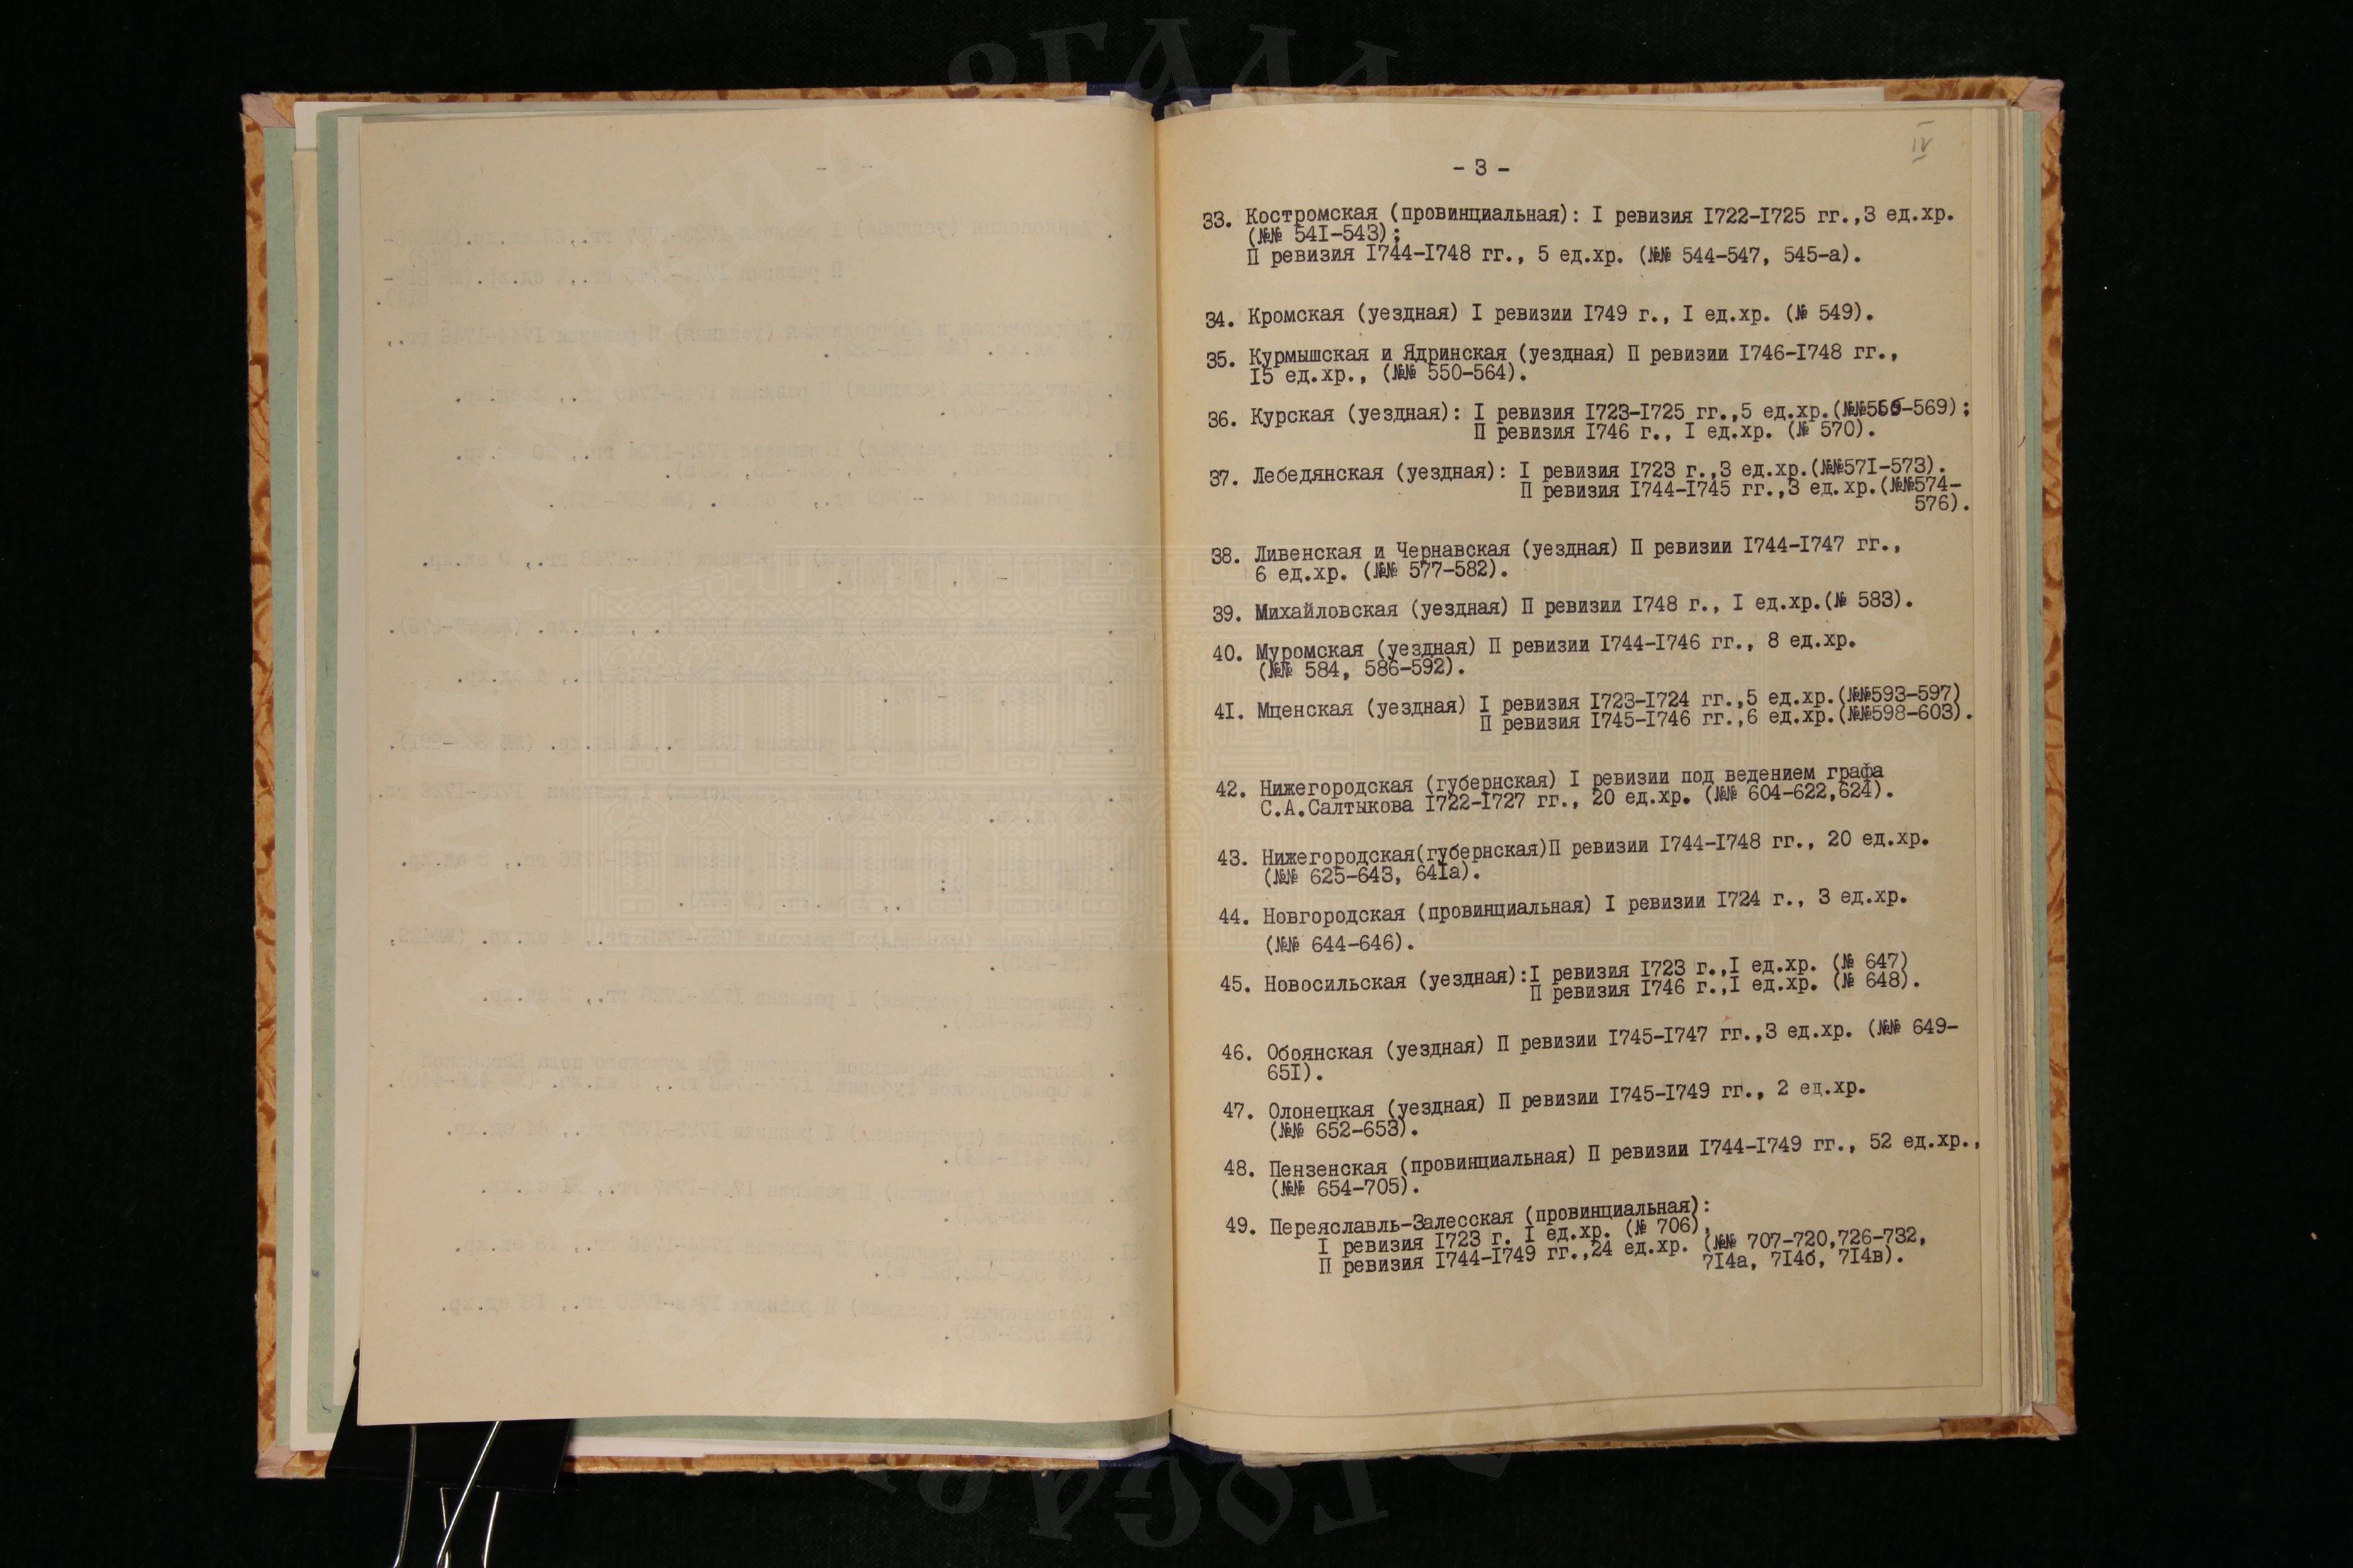 IV
- 3 -
33. Костромская (провинциальная): I ревизия I722-I725 гг.,3 ед.хр.
(№№ 54I-543);
П ревизия I744-I748 гг., 5 ед.хр. (№№ 544-547, 545-а).
34. Кромская (уездная) I ревизии I749 г., I ед.хр. (№ 549).
35. Курмышская и Ядринская (уездная) П ревизии I746-I748 гг.,
I5 ед.хр., (№№ 550-564).
36. Курская (уездная): I ревизия I723-I725 гг.,5 ед.хр.(№№ -569);
П ревизия I746 г., I ед.хр. (№ 570).
37. Лебедянская (уездная): I ревизия I723 г.,3 ед.хр.(№№57I-573).
П ревизия I744-I745 гг.,3 ед.хр.(№№574-
576).
38. Ливенская и Чернавская (уездная) П ревизии I744-I747 гг.,
6 ед.хр. (№№ 577-582).
39. Михайловская (уездная) П ревизии I748 г., I ед.хр.(№ 583).
40. Муромская (уездная) П ревизии I744-I746 гг., 8 ед.хр.
(№№ 584, 586-592).
4I. Мценская (уездная) I ревизия I723-I724 гг.,5 ед.хр.(№№593-597)
П ревизия I745-I746 гг.,6 ед.хр.(№№598-603).
42. Нижегородская (губернская) I ревизии под ведением графа
С.А.Салтыкова I722-I727 гг., 20 ед.хр. (№№ 604-622,624).
43. Нижегородская(губернская)П ревизии I744-I748 гг., 20 ед.хр.
(№№ 625-643, 64Iа).
44. Новгородская (провинциальная) I ревизии I724 г., 3 ед.хр.
(№№ 644-646).
45. Новосильская (уездная):I ревизия I723 г.,I ед.хр. (№ 647)
П ревизия I746 г.,I ед.хр. (№ 648).
46. Обоянская (уездная) П ревизии I745-I747 гг.,3 ед.хр. (№№ 649-
65I).
47. Олонецкая (уездная) П ревизии I745-I749 гг., 2 ед.хр.
(№№ 652-653).
48. Пензенская (провинциальная) П ревизии I744-I749 гг., 52 ед.хр.,
(№№ 654-705).
49. Переяславль-Залесская (провинциальная):
I ревизия I723 г. I ед.хр. (№ 706),
П ревизия I744-I749 гг.,24 ед.хр. (№№ 707-720,726-732,
7I4а, 7I4б, 7I4в).